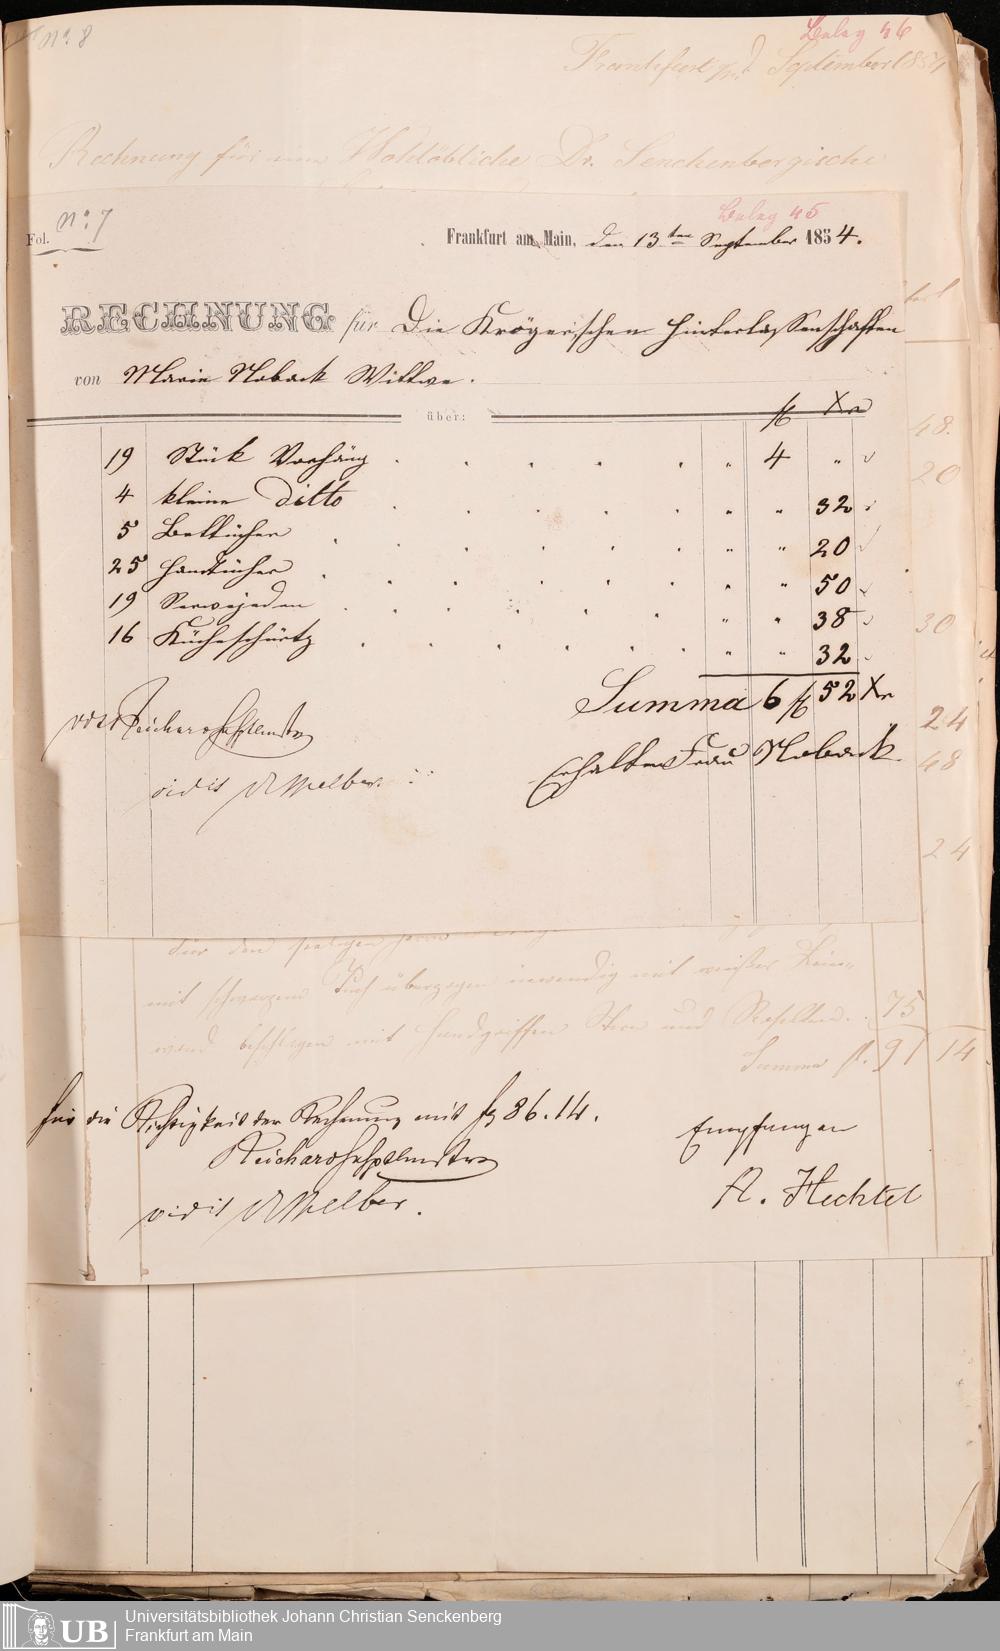 No. 8
Beleg 46
Frankfurt a/m September 1854
Rechnung für eine Wohllöbliche Dr. Senckenbergische
No. 7
Beleg 45
Fol.
Frankfurt am Main, den 13ten September 1854.
RECHNUNG für Die Krögerischen Hinterlassenschaften
von Marie Noback Wittwe.
über:
fl Xr
19 Stück Vorhäng 4 "
4 kleine ditto " 32
5 Betttücher " 20
25 Handtücher " 50
19 Serwijeden " 38
16 Küchschürtz " 32
Summa 6 fl 52 Xr
Erhalten Frau Noback.
vidit Melber.
48.
20
30
24
48
24
für den seeligen Herrn
mit schwarzem Tuch überzogen inwendig mit weißer Lein-
wand beschlagen mit Handgriffen Stern und Rosetten. 75
Summa fl. 91 14
Für die Richtigkeit der Rechnung mit fl 86.14.
Empfangen
A. Hechtel
vidit Melber.
UB
Universitätsbibliothek Johann Christian Senckenberg
Frankfurt am Main